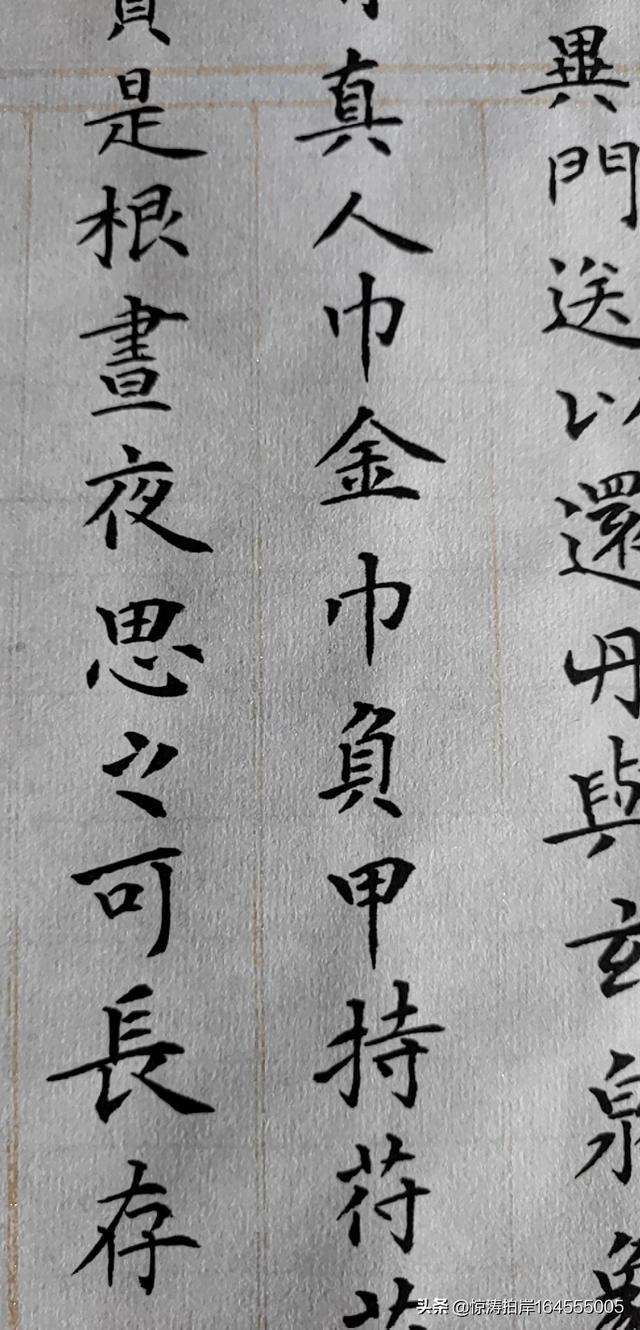 異門送以還丹與玄泉
真人巾金巾負甲持苻
是根晝夜思之可長存
头条 @惊涛拍岸164555005